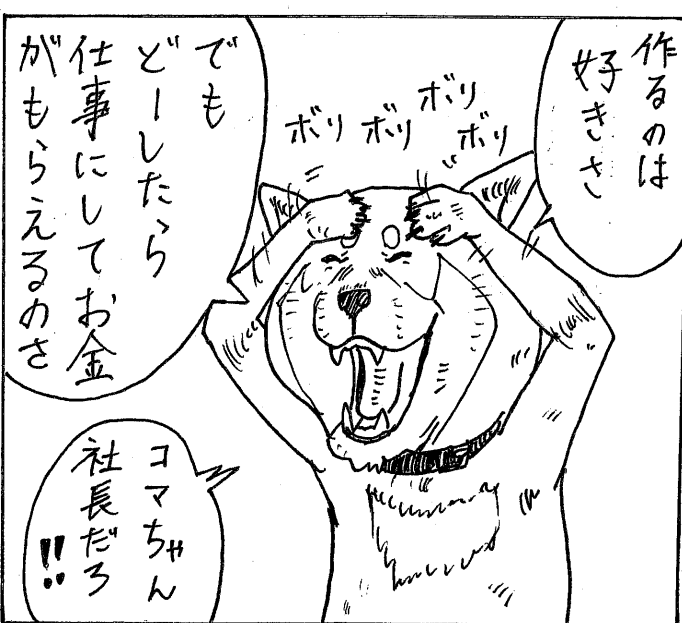 作るのは
好きさ
ボリ
ボリ
ボリ
ボリ
でも
どーしたら
仕事にしてお金
がもらえるのさ
コマちゃん
社長だろ
!!